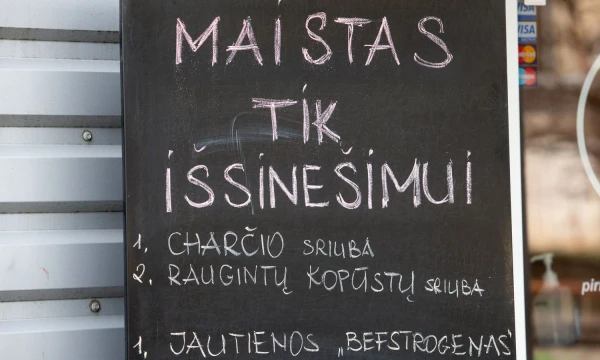 MAISTAS
TIK
IŠSINEŠIMUI
1. CHARČIO SRIUBA
2. RAUGINTŲ KOPŪSTŲ SRIUBA
1. JAUTIENOS „BEFSTROGENAS"
VISA
VISA
MasterCard